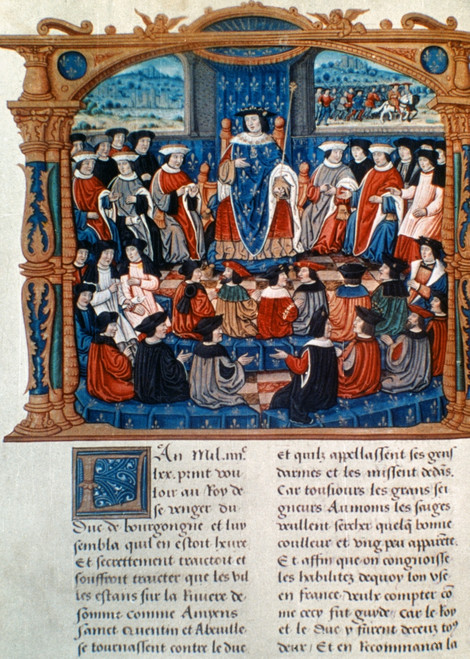 LAn Mil. iiiic
lxx. print vou
loir au Roy de
se venger du
Duc de bourgongne et luy
sembla quil en estoit heure
Et secrettement traictoit et
souffroit traicter que les vil
les estans sur la Riuiere de
Somme comme Amyens
Sainct Quentin et Abeuille
se tournassent contre le duc
Et quilz appellassent ses gens
darmes et les missent dedās.
Car tousiours les grans sei
gneurs Aumoins les saiges
veullent sercher quelq̄ bonne
coulleur et vng peu apparēte
Et affin que on congnoisse
les habilitez dequoy lon vse
en france veulx compter cō
me cecy fut guyde Car le Roy
et le Duc y furent deceuz toꝰ
deux / Et en Recommanca la